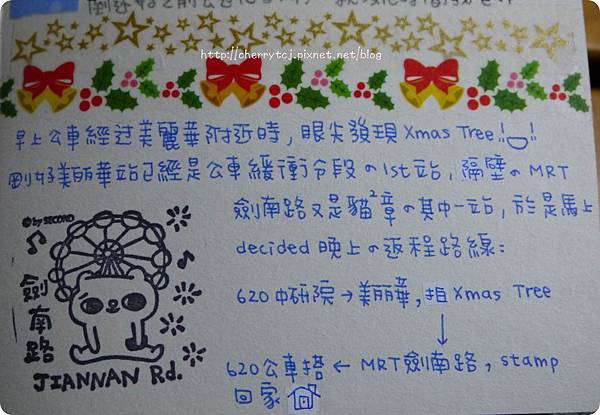 http://cherrytcj.pixnet.net/blog
早上公車經过美麗華附近時，眼尖發現 Xmas Tree!
剛好美丽華站已經是公車緩衝分段の1st站，隔壁の MRT
劍南路又是貓²章の其中一站，於是馬上
decided 晚上の返程路線：
620 中研院→美丽華，拍 Xmas Tree
↓
620公車搭 ← MRT劍南路，stamp
回家
©by SECOND
劍南路
JIANNAN Rd.